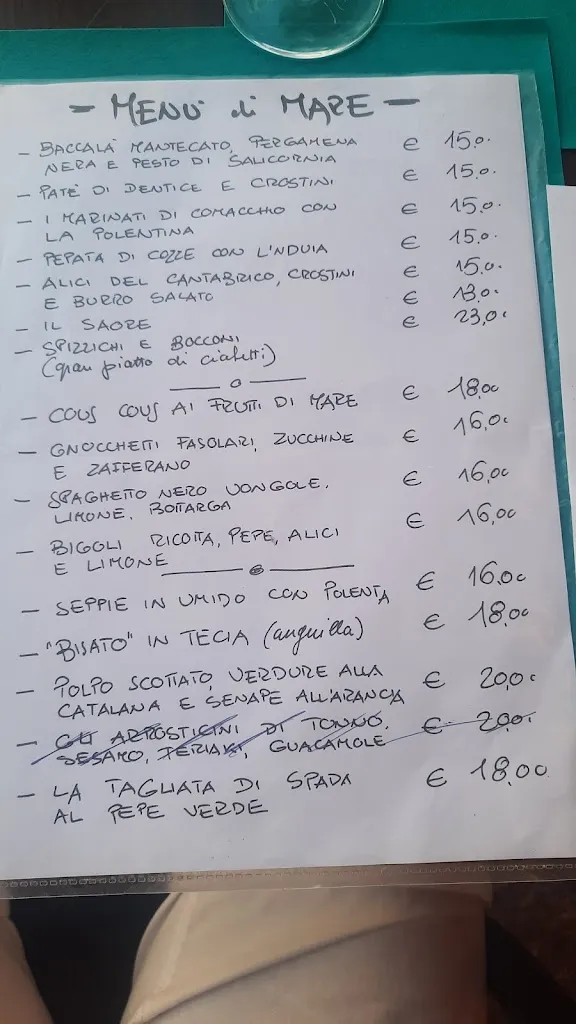 - MENÙ di MARE -
- BACCALÀ MANTECATO, PERGAMENA € 15,0.
NERA E PESTO DI SALICORNIA
- PATÈ DI DENTICE E CROSTINI € 15,0.
- I MARINATI DI COMACCHIO CON € 15,0.
LA POLENTINA
- PEPATA DI COZZE CON L'NDUIA € 15,0.
- ALICI DEL CANTABRICO, CROSTINI € 15,0.
E BURRO SALATO
- IL SAORE € 13,0.
- SPIZZICHI E BOCCONI € 23,0.
(gran piatto di cichetti)
- COUS COUS AI FRUTTI DI MARE € 18,00
- GNOCCHETTI FASOLARI, ZUCCHINE € 16,0.
E ZAFFERANO
- SPAGHETTO NERO VONGOLE, € 16,00
LIMONE, BOTTARGA
- BIGOLI RICOTTA, PEPE, ALICI € 16,00
E LIMONE
- SEPPIE IN UMIDO CON POLENTA € 16,00
- "BISATO" IN TECIA (anguilla) € 18,00
- POLPO SCOTTATO, VERDURE ALLA € 20,0.
CATALANA E SENAPE ALL'ARANCIA
- GLI ARROSTICINI DI TONNO, € 20,0.
SESAMO, TERIAKI, GUACAMOLE
- LA TAGLIATA DI SPADA € 18,00
AL PEPE VERDE